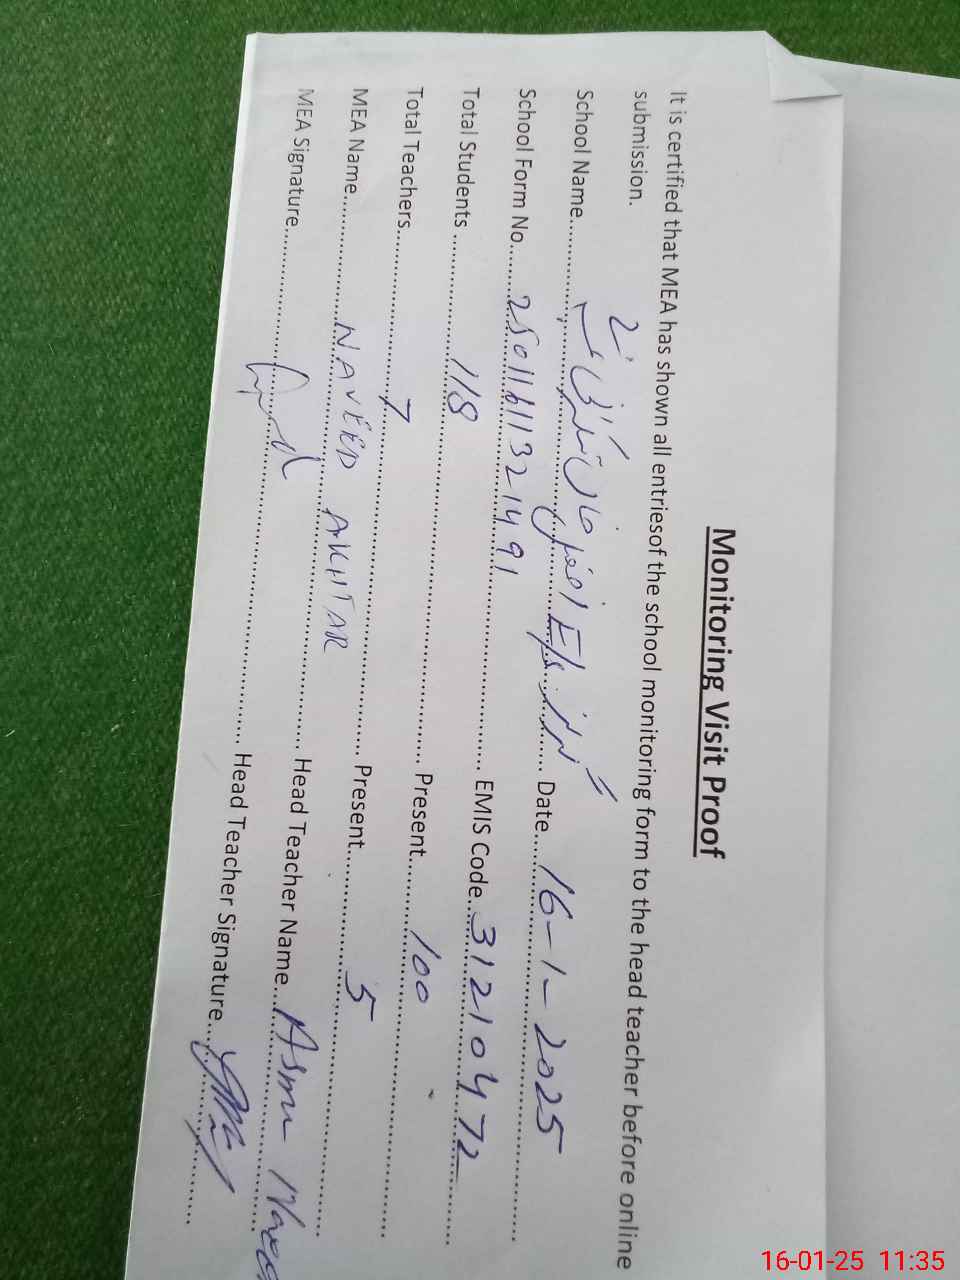 Monitoring Visit Proof
It is certified that MEA has shown all entriesof the school monitoring form to the head teacher before online
submission.
School Name............ E/S ............ Date.... 16-1-2025
School Form No...... 25011611321491 ............ EMIS Code.. 31210472
Total Students ............ 118 ............ Present......... 100
Total Teachers............ 7 ............ Present......... 5
MEA Name............ NAVEED AKHTAR ............ Head Teacher Name.. Asma
MEA Signature............ Head Teacher Signature............
16-01-25 11:35